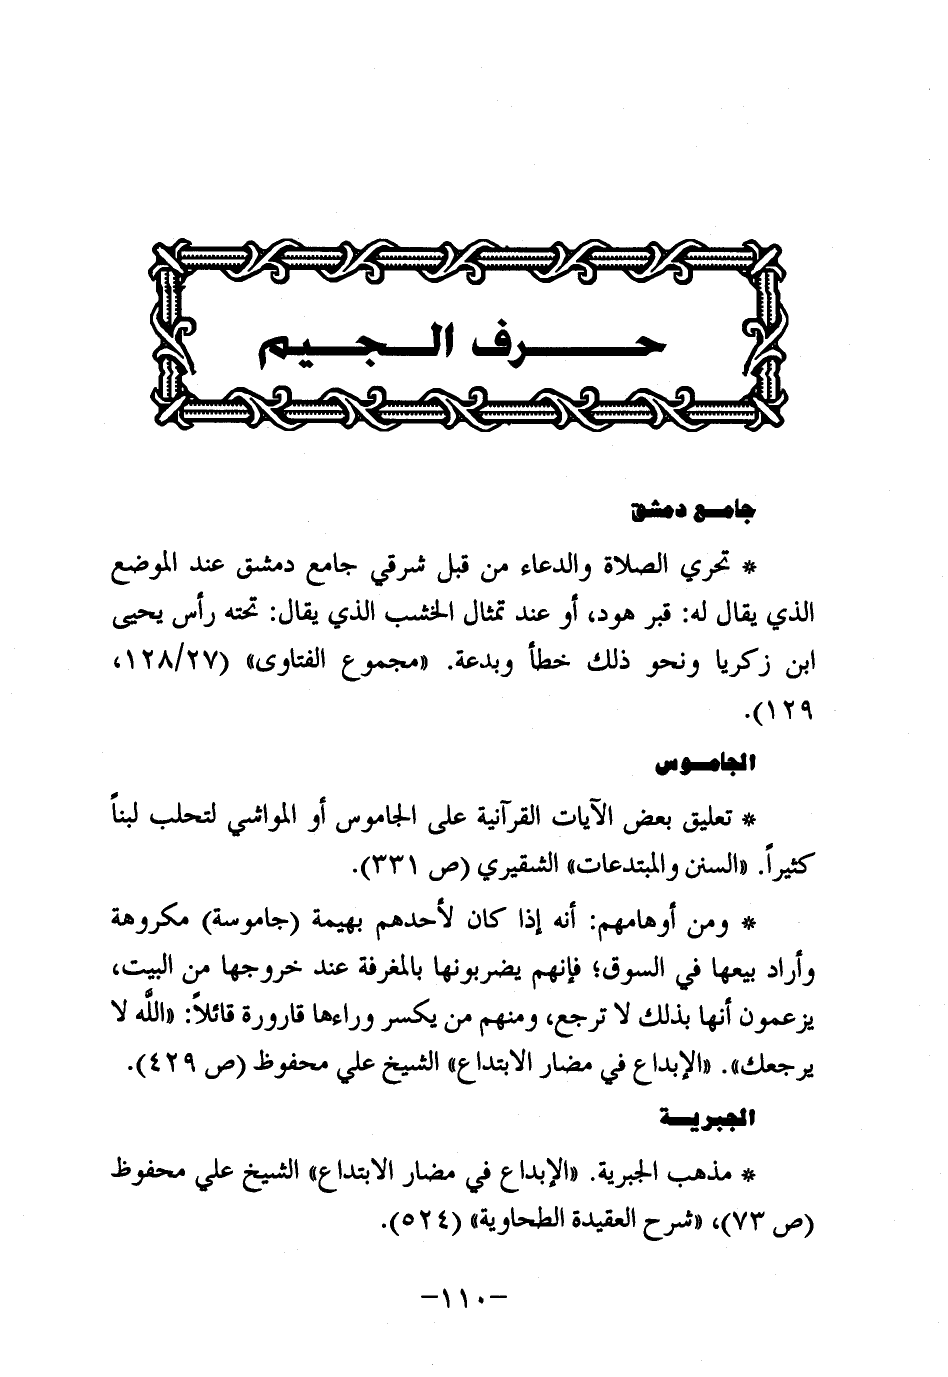 حرف الجيم
جامع دمشق
* تحري الصلاة والدعاء من قبل شرقي جامع دمشق عند الموضع
الذي يقال له: قبر هود، أو عند تمثال الخشب الذي يقال: تحته رأس يحيى
ابن زكريا ونحو ذلك خطأ وبدعة. «مجموع الفتاوى» (١٢٨/٢٧،
١٢٩).
الجاموس
* تعليق بعض الآيات القرآنية على الجاموس أو المواشي لتحلب لبناً
كثيراً. «السنن والمبتدعات» الشقيري (ص ٣٣١).
* ومن أوهامهم: أنه إذا كان لأحدهم بهيمة (جاموسة) مكروهة
وأراد بيعها في السوق؛ فإنهم يضربونها بالمغرفة عند خروجها من البيت،
يزعمون أنها بذلك لا ترجع، ومنهم من يكسر وراءها قارورة قائلاً: «اللَّه لا
يرجعك». «الإبداع في مضار الابتداع» الشيخ علي محفوظ (ص ٤٢٩).
الجبرية
* مذهب الجبرية. «الإبداع في مضار الابتداع» الشيخ علي محفوظ
(ص ٧٣)، «شرح العقيدة الطحاوية» (٥٢٤).
-١١٠-